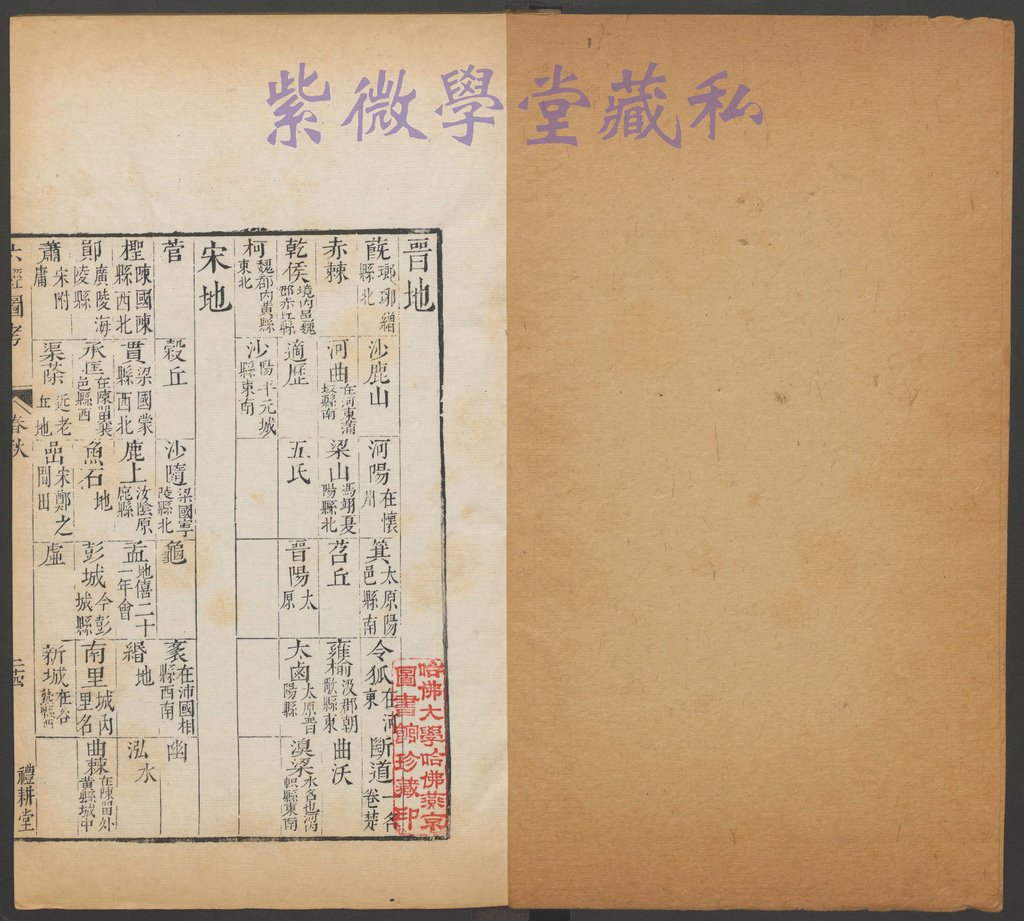 紫微學堂藏私
晉地
蔇瑯琊繒縣北 沙鹿山 河陽在懷州 箕太原陽邑縣南 令狐在河東 斷道一名卷楚
赤棘 河曲在河東蒲坂縣南 梁山馮翊夏陽縣北 苕丘 雍榆汲郡朝歌縣東 曲沃
乾侯境內邑魏郡斥丘縣 適歷 五氏 晉陽太原 大鹵太原晉陽縣 溴梁水名也河內軹縣東南
柯魏郡內黃縣東北 沙陽平元城縣東南
宋地
菅 穀丘 沙隨梁國寧陵縣北 龜 袲在沛國相縣西南 幽
檉陳國陳縣西北 貫梁國蒙縣西北 鹿上汝陰原鹿縣 盂地僖二十一年會 緡地 泓水
鄖廣陵海陵縣 承匡在陳留襄邑縣西 魚石地 彭城今彭城縣 南里城內里名 曲棘在陳留外黃縣城中
蕭宋附庸 渠蒢近老丘地 嵒宋鄭之間田 虛 新城在谷熟縣西
六經圖考
春秋
禮耕堂
哈佛大學哈佛燕京
圖書館珍藏印